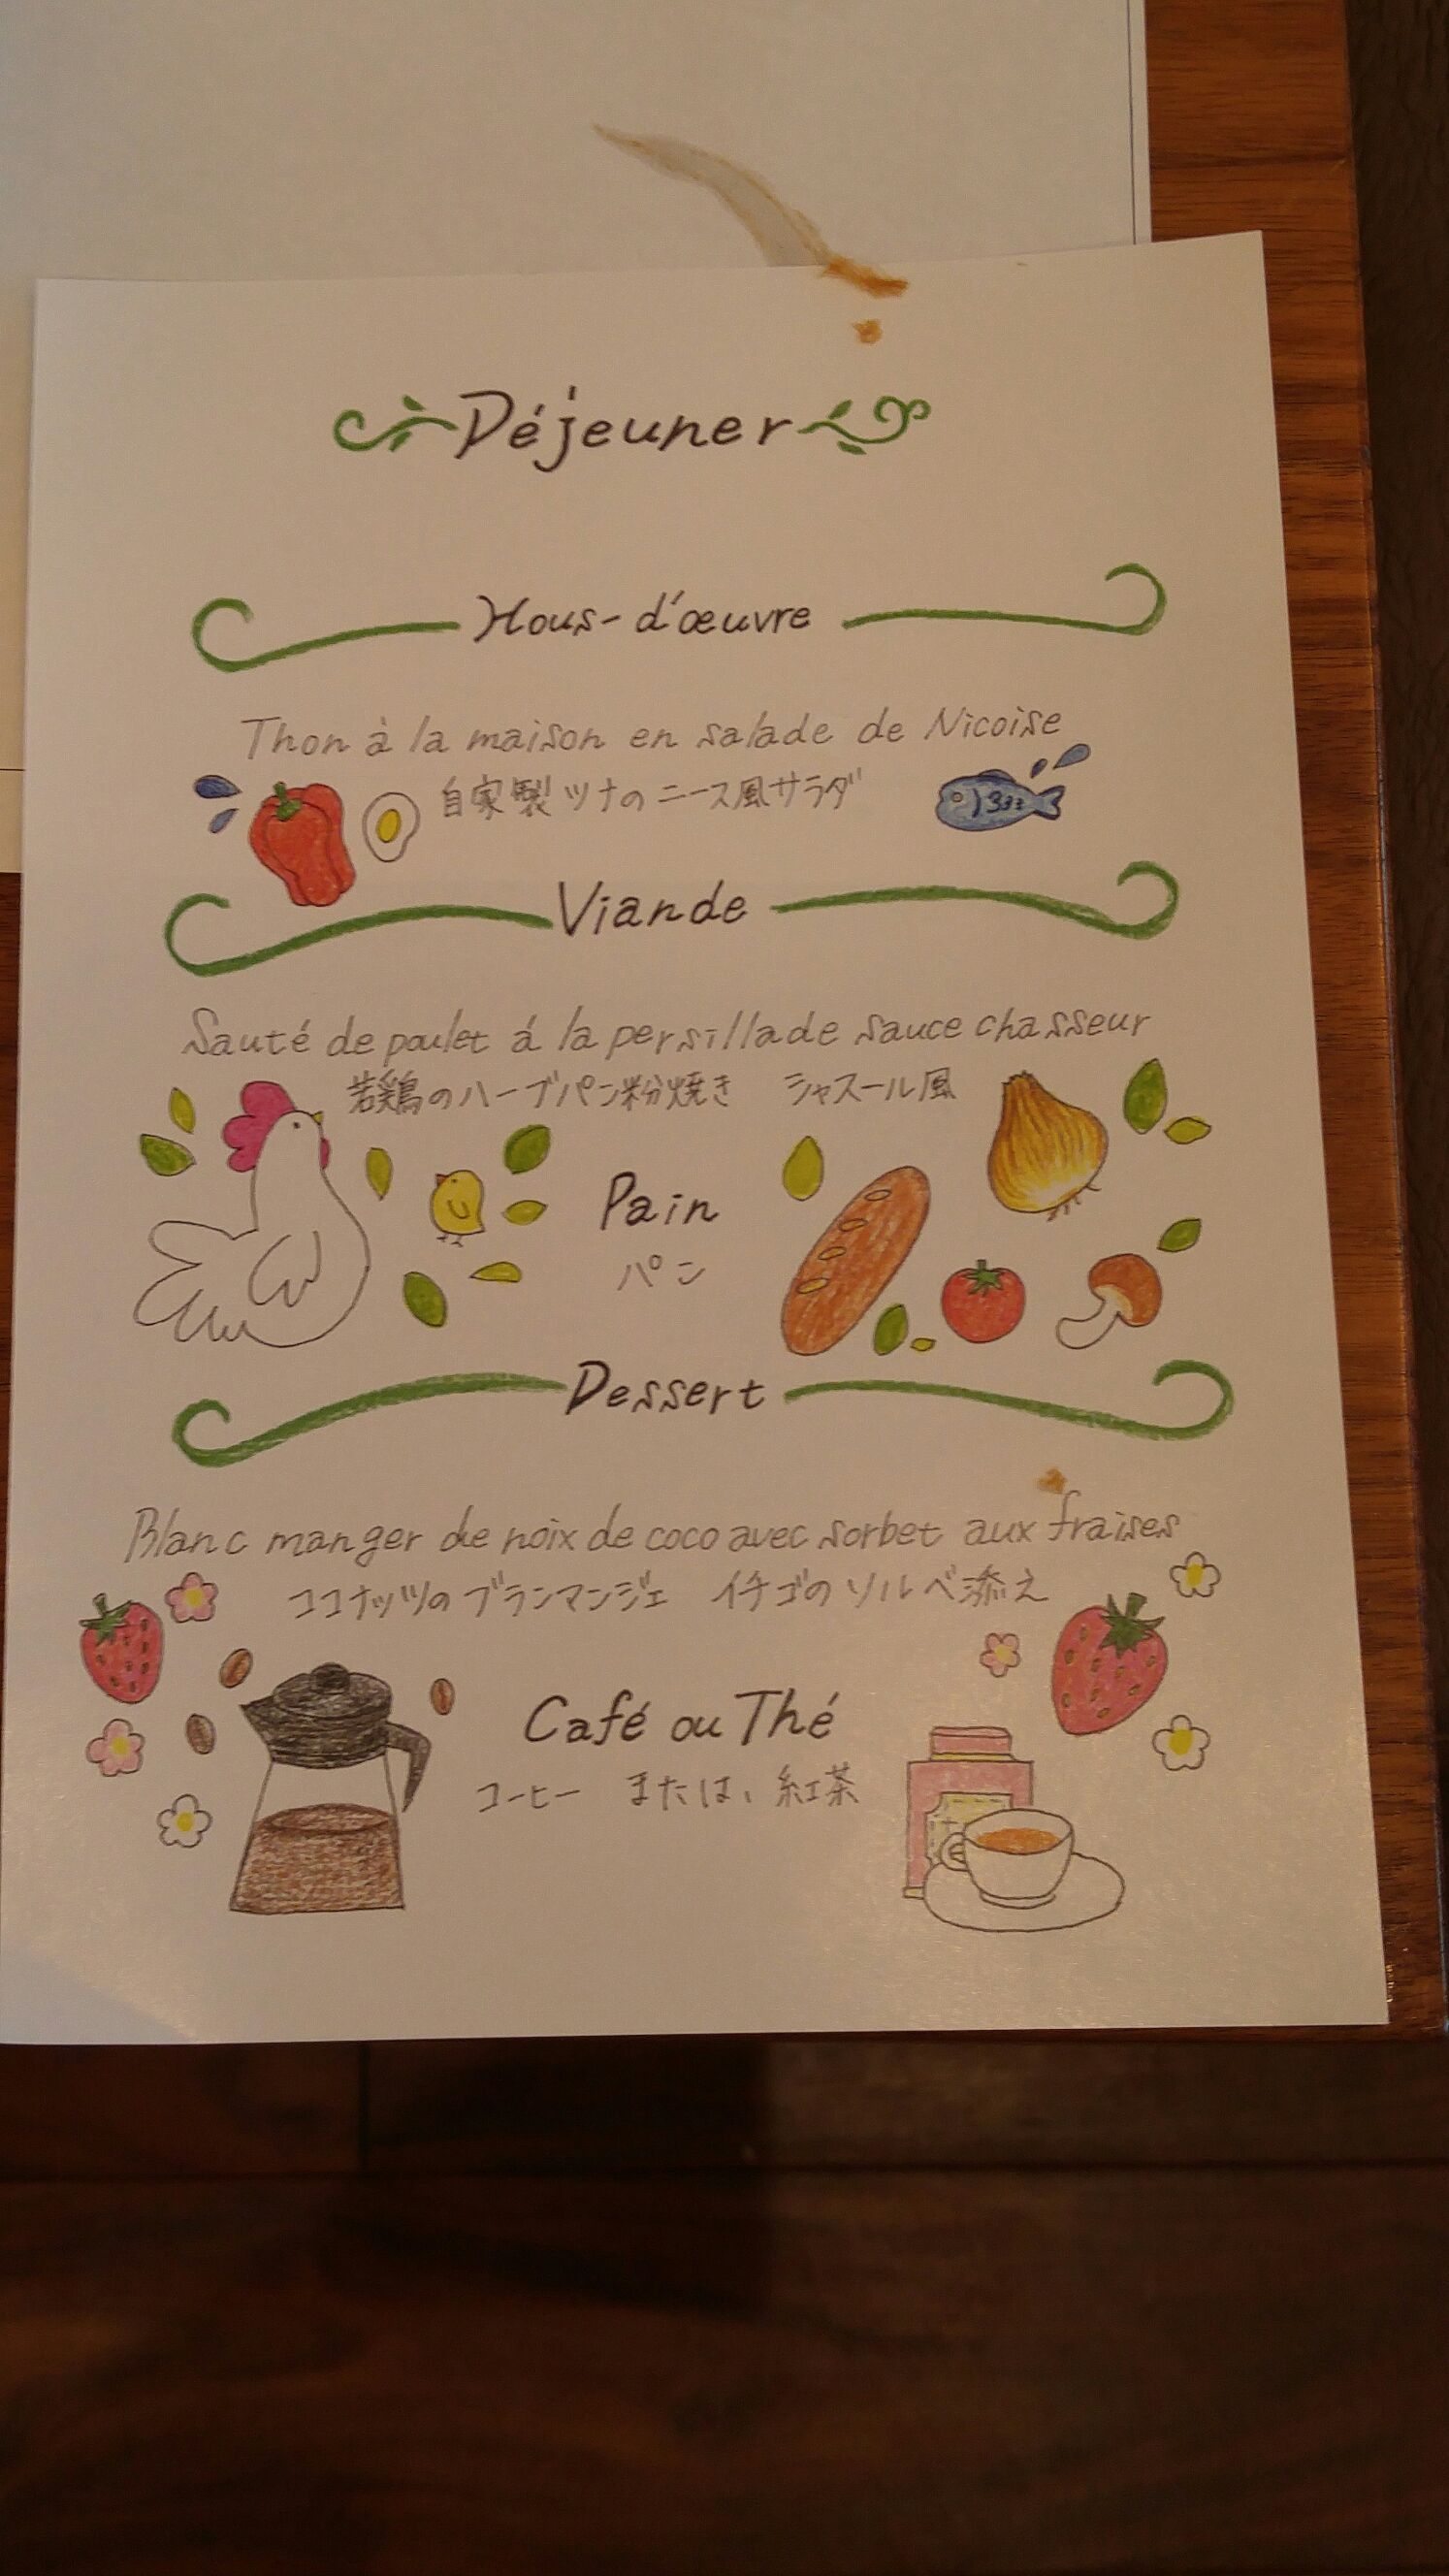 Déjeuner
Hous-d'œuvre
Thon à la maison en salade de Nicoise
自家製ツナのニース風サラダ
Viande
Sauté de poulet á la persillade sauce chasseur
若鶏のハーブパン粉焼き シャスール風
Pain
パン
Dessert
Blanc manger de noix de coco avec sorbet aux fraises
ココナッツのブランマンジェ イチゴのソルベ添え
Café ou Thé
コーヒー または、紅茶